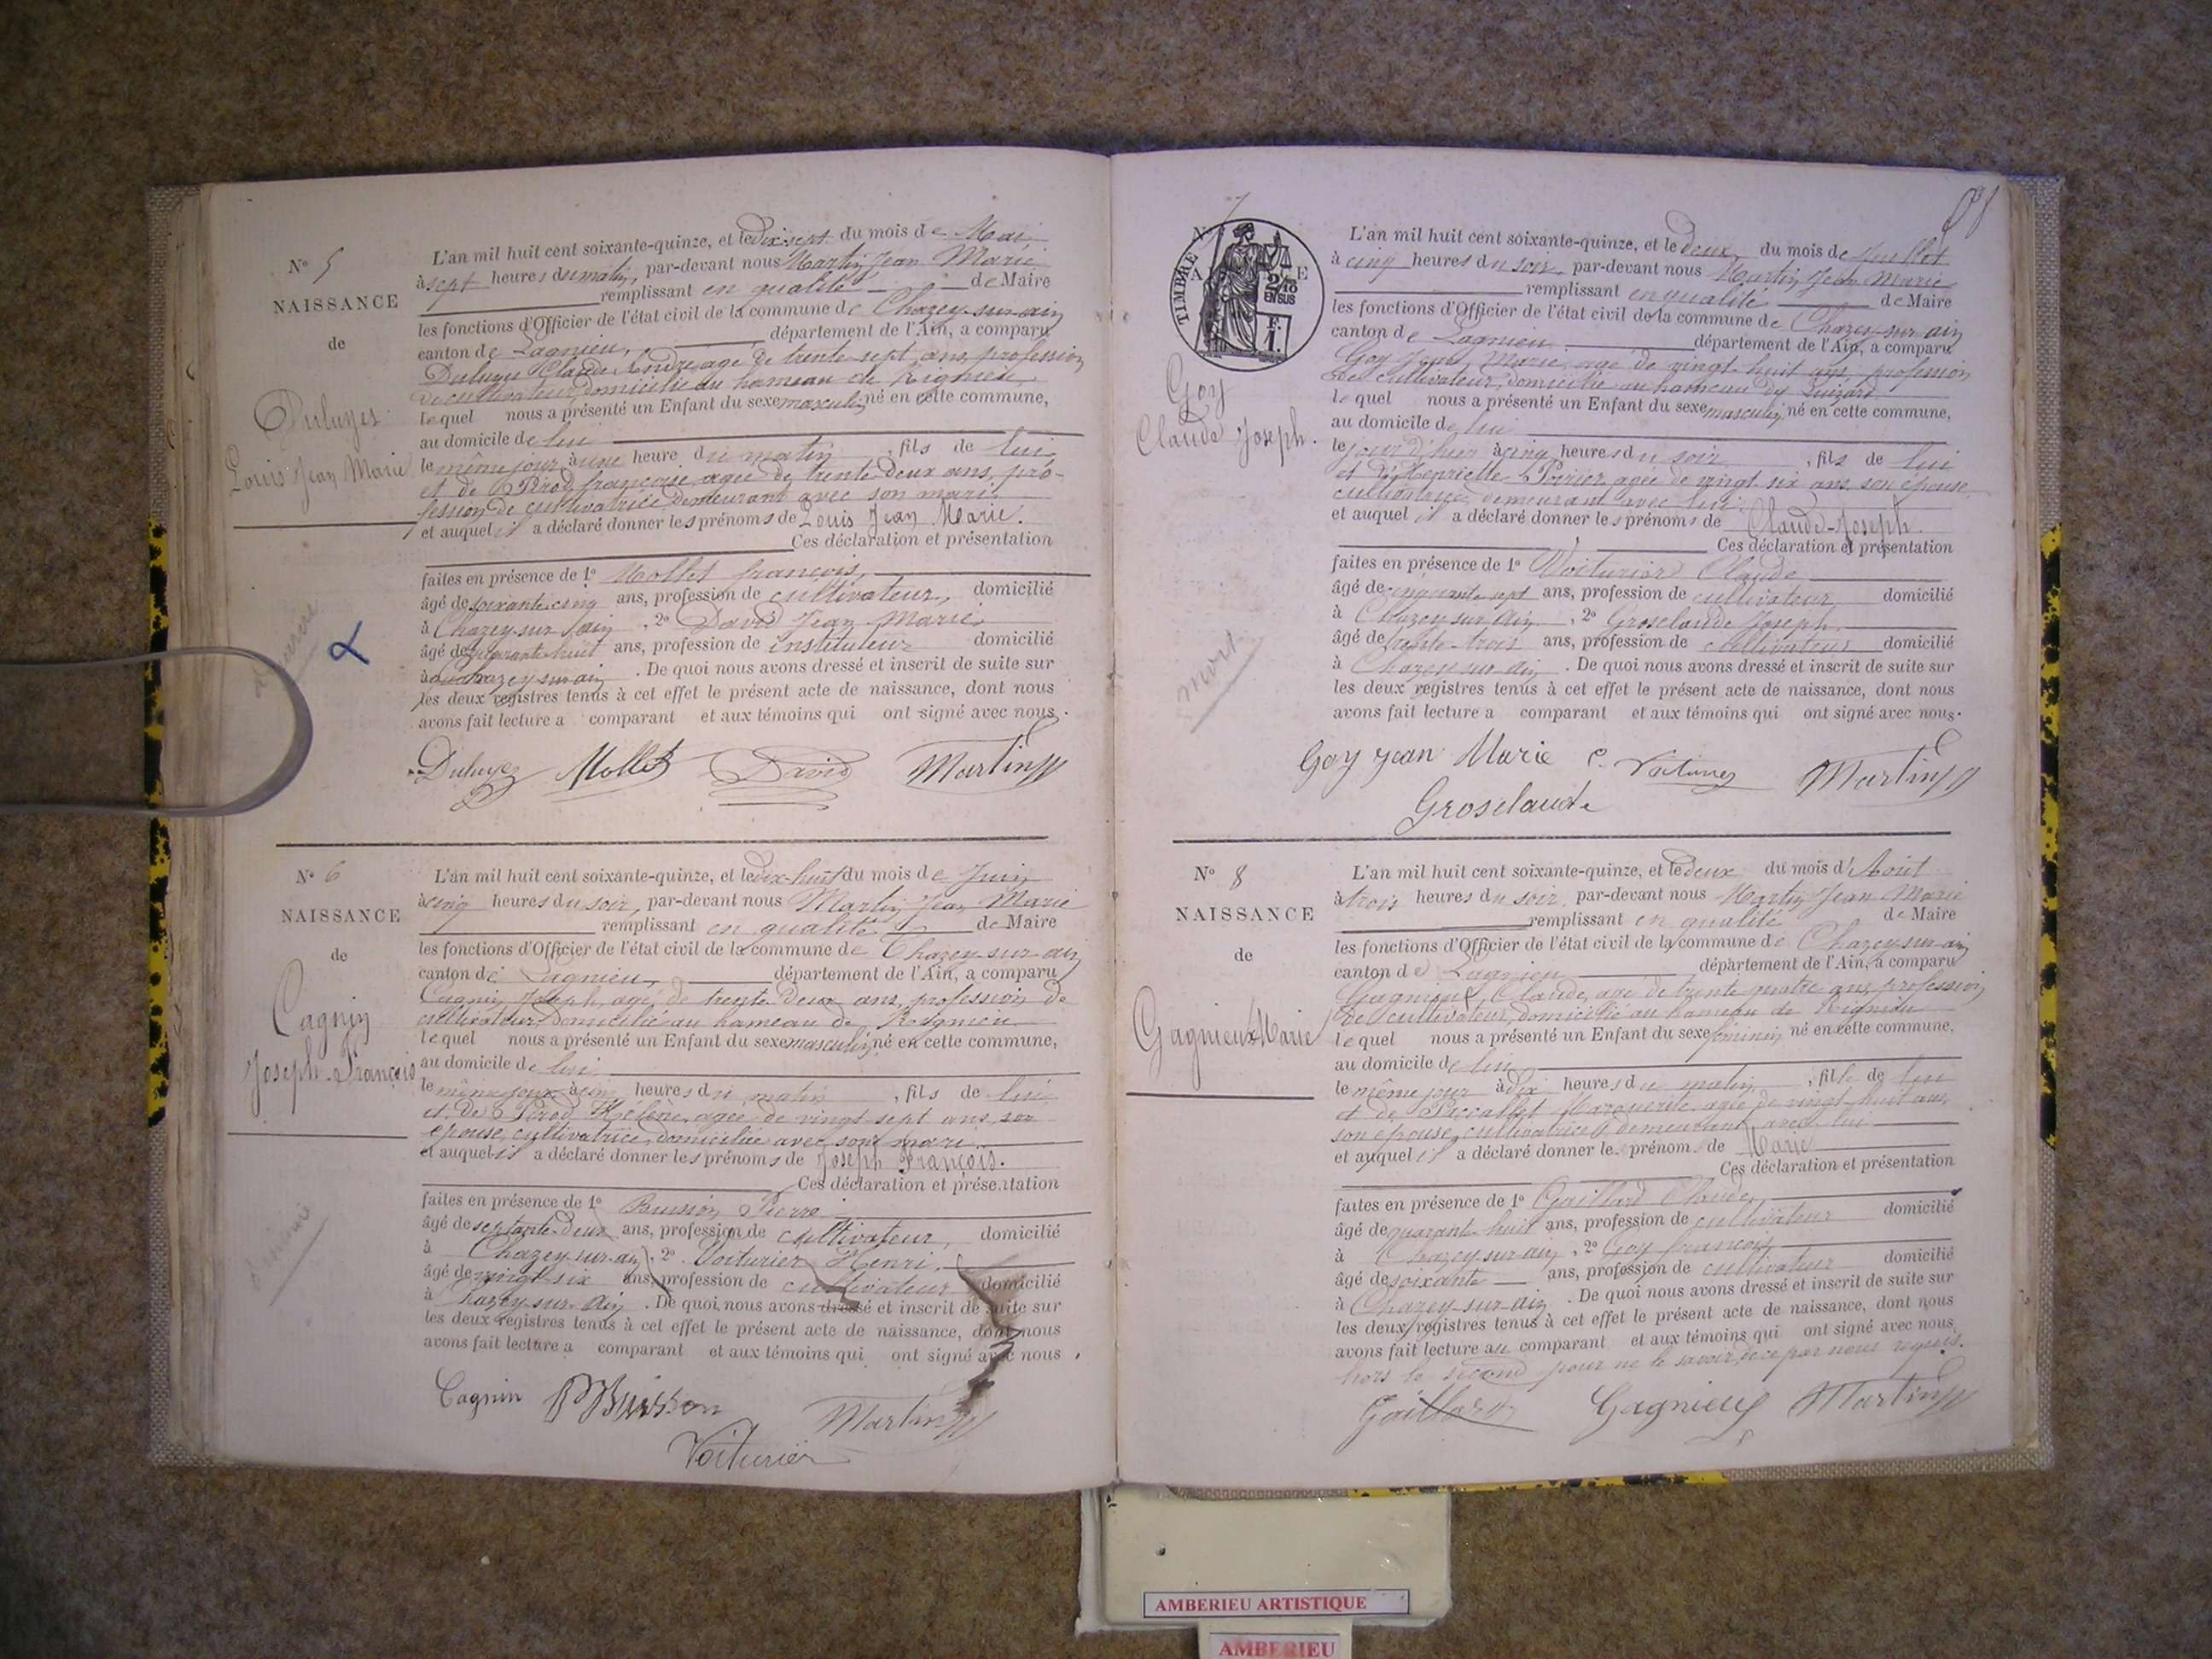 N° 5
NAISSANCE
de
Duluyer
Louis Jean Marie
L'an mil huit cent soixante-quinze, et le dix-sept du mois de Mai
à sept heures du matin, par-devant nous Martin Jean Marie
remplissant en qualité de Maire
les fonctions d'Officier de l'état civil de la commune de Chazey-sur-ain
canton de Lagnieu, département de l'Ain, a comparu
Claude André, agé de trente-sept ans, profession
de cultivateur, domicilié au hameau de Rignieu
lequel nous a présenté un Enfant du sexe masculin, né en cette commune,
au domicile de lui
le même jour, à une heure du matin, fils de lui
et de Pérod françoise, agée de trente-deux ans, pro-
fession de cultivatrice, demeurant avec son mari,
et auquel il a déclaré donner les prénoms de Louis Jean Marie.
Ces déclaration et présentation
faites en présence de 1° Mollet françois,
âgé de soixante-cinq ans, profession de cultivateur, domicilié
à Chazey-sur-Ain, 2° David Jean Marie
âgé de quarante-huit ans, profession de instituteur domicilié
à Chazey-sur-ain. De quoi nous avons dressé et inscrit de suite sur
les deux registres tenus à cet effet le présent acte de naissance, dont nous
avons fait lecture a comparant et aux témoins qui ont signé avec nous.
Mollet David Martin
N° 6
NAISSANCE
de
Cagnin
Joseph-François
L'an mil huit cent soixante-quinze, et le dix-huit du mois de Juin
à cinq heures du soir, par-devant nous Martin Jean Marie
remplissant en qualité de Maire
les fonctions d'Officier de l'état civil de la commune de Chazey-sur-ain
canton de Lagnieu, département de l'Ain, a comparu
Cagnin Joseph, agé de trente-deux ans, profession de
cultivateur, domicilié au hameau de Rignieu
lequel nous a présenté un Enfant du sexe masculin, né en cette commune,
au domicile de lui
le même jour, à cinq heures du matin, fils de lui
et de Pérod Hélène, agée de vingt-sept ans, son
épouse, cultivatrice, domiciliée avec son mari
et auquel il a déclaré donner les prénoms de Joseph François.
Ces déclaration et présentation
faites en présence de 1° Buisson Pierre
âgé de septante-deux ans, profession de cultivateur, domicilié
à Chazey-sur-ain, 2° Voiturier Henri,
âgé de vingt-six ans, profession de cultivateur domicilié
à Chazey-sur-Ain. De quoi nous avons dressé et inscrit de suite sur
les deux registres tenus à cet effet le présent acte de naissance, dont nous
avons fait lecture a comparant et aux témoins qui ont signé avec nous,
Cagnin Buisson Martin
Voiturier
N° 7
TIMBRE
2/10
EN SUS
Goy
Claude Joseph.
mort
L'an mil huit cent soixante-quinze, et le deux du mois de Juillet
à cinq heures du soir, par-devant nous Martin Jean Marie
remplissant en qualité de Maire
les fonctions d'Officier de l'état civil de la commune de Chazey-sur-ain
canton de Lagnieu département de l'Ain, a comparu
Goy Jean Marie, agé de vingt-huit ans, profession
de cultivateur, domicilié au hameau du Luizard
lequel nous a présenté un Enfant du sexe masculin, né en cette commune,
au domicile de lui
le jour d'hier à cinq heures du soir, fils de lui
et d'Henriette Poirier, agée de vingt-six ans, son épouse,
cultivatrice, demeurant avec lui
et auquel il a déclaré donner les prénoms de Claude-Joseph.
Ces déclaration et présentation
faites en présence de 1° Voiturier Claude
âgé de cinquante-sept ans, profession de cultivateur domicilié
à Chazey-sur-Ain, 2° Groselaude Joseph
âgé de trente-trois ans, profession de cultivateur domicilié
à Chazey-sur-ain. De quoi nous avons dressé et inscrit de suite sur
les deux registres tenus à cet effet le présent acte de naissance, dont nous
avons fait lecture a comparant et aux témoins qui ont signé avec nous.
Goy Jean Marie C. Martin
Groselaude
N° 8
NAISSANCE
de
Gagnieux Marie
L'an mil huit cent soixante-quinze, et le deux du mois d'Aout
à trois heures du soir, par-devant nous Martin Jean Marie
remplissant en qualité de Maire
les fonctions d'Officier de l'état civil de la commune de Chazey-sur-ain
canton de Lagnieu département de l'Ain, a comparu
Gagnieux Claude, agé de trente-quatre ans, profession
de cultivateur, domicilié au hameau de Rignieu
lequel nous a présenté un Enfant du sexe féminin, né en cette commune,
au domicile de lui
le même jour à dix heures du matin, fille de lui
et de Marguerite, agée de vingt-huit ans,
son épouse, cultivatrice, demeurant avec lui
et auquel il a déclaré donner le prénom de Marie
Ces déclaration et présentation
faites en présence de 1° Gaillard Claude,
âgé de quarante-huit ans, profession de cultivateur domicilié
à Chazey-sur-ain, 2° Goy françois
âgé de soixante ans, profession de cultivateur domicilié
à Chazey-sur-ain. De quoi nous avons dressé et inscrit de suite sur
les deux registres tenus à cet effet le présent acte de naissance, dont nous
avons fait lecture au comparant et aux témoins qui ont signé avec nous,
hors le second pour ne le savoir, de ce par nous requis.
Gaillard Gagnieux Martin
AMBERIEU ARTISTIQUE
AMBERIEU